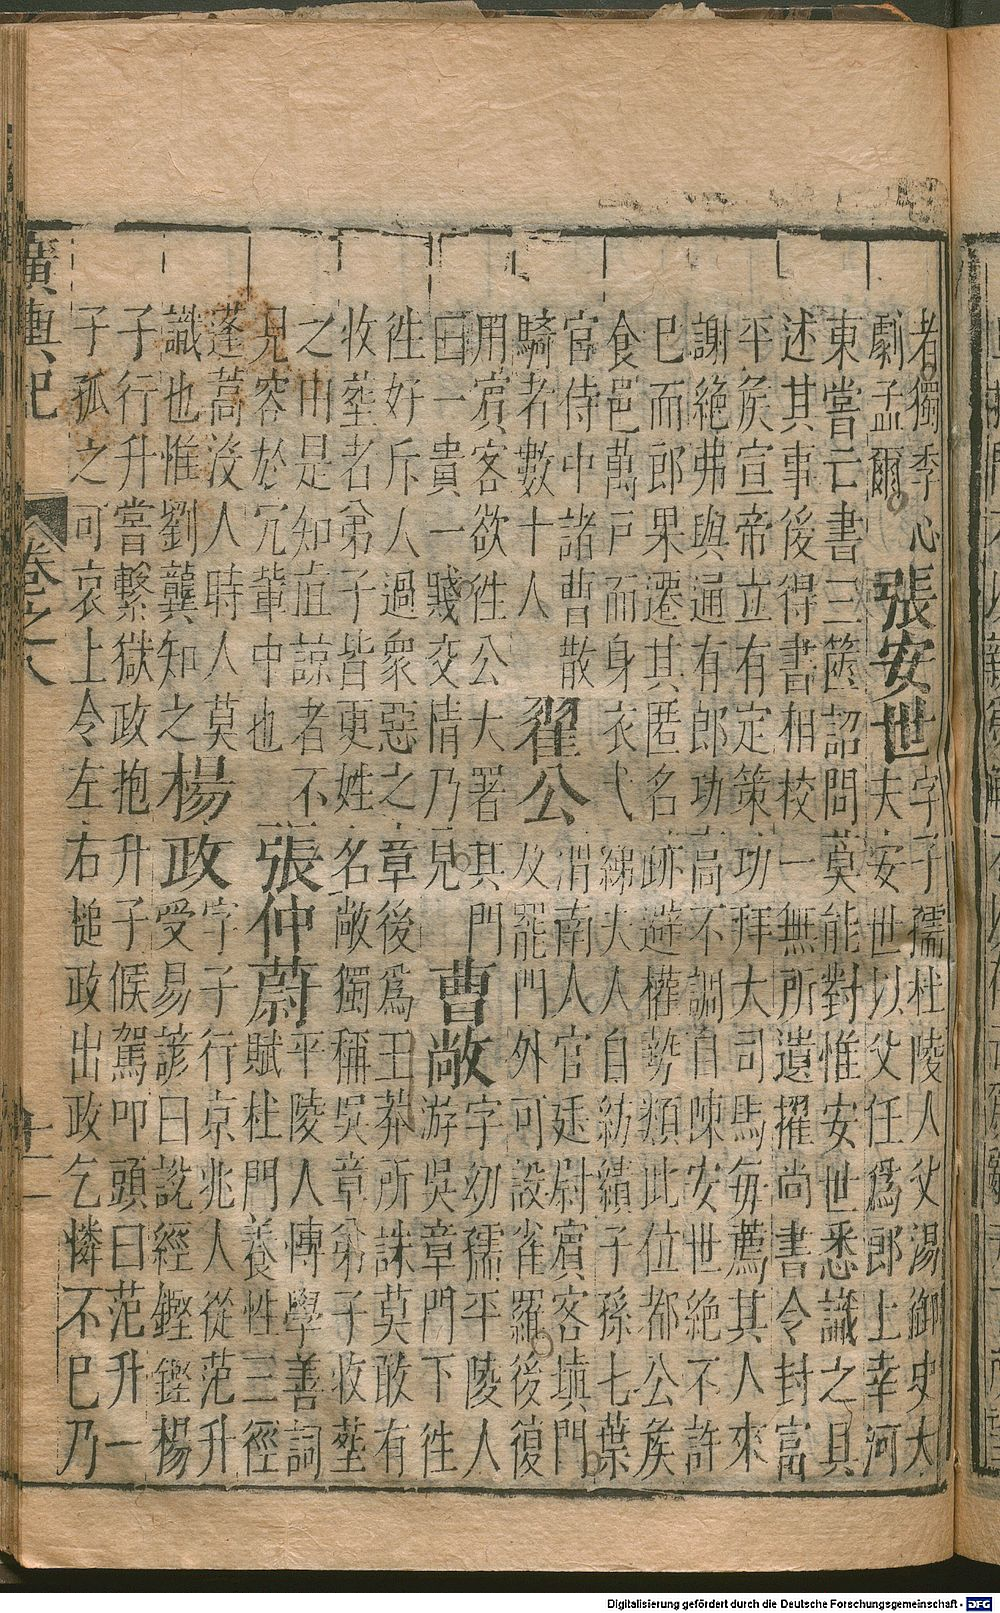 者獨季心
劇孟爾
張安世
字子孺杜陵人父湯御史大
夫安世以父任爲郎上幸河
東嘗亡書三篋詔問莫能對惟安世悉識之具
述其事後得書相校一無所遺擢尚書令封富
平矦宣帝立有定策功拜大司馬每薦其人來
謝絶弗與通有郎功高不調自陳安世絶不許
已而郎果遷其匿名跡避權勢類此位都公矦
食邑萬戸而身衣弋綈夫人自紡績子孫七葉
宦侍中諸曹散
騎者數十人
翟公
渭南人官廷尉賓客填門
及罷門外可設雀羅後復
用賓客欲徃公大署其門
曰一貴一賤交情乃見
曹敞
字幼孺平陵人
游吳章門下徃
徃好斥人過衆惡之章後爲王莽所誅莫敢有
收塟者弟子皆更姓名敞獨稱吳章弟子收塟
之山是知直諒者不
見容於冗軰中也
張仲蔚
平陵人博學善詞
賦杜門養性三徑
蓬蒿沒人時人莫
識也惟劉龔知之
楊政
字子行京兆人從范升
受易諺曰說經鏗鏗楊
子行升嘗繫獄政抱升子候駕叩頭曰范升一
子孤之可哀上令左右搥政出政乞憐不已乃
廣輿記 卷之八 十一
Digitalisierung gefördert durch die Deutsche Forschungsgemeinschaft - DFG